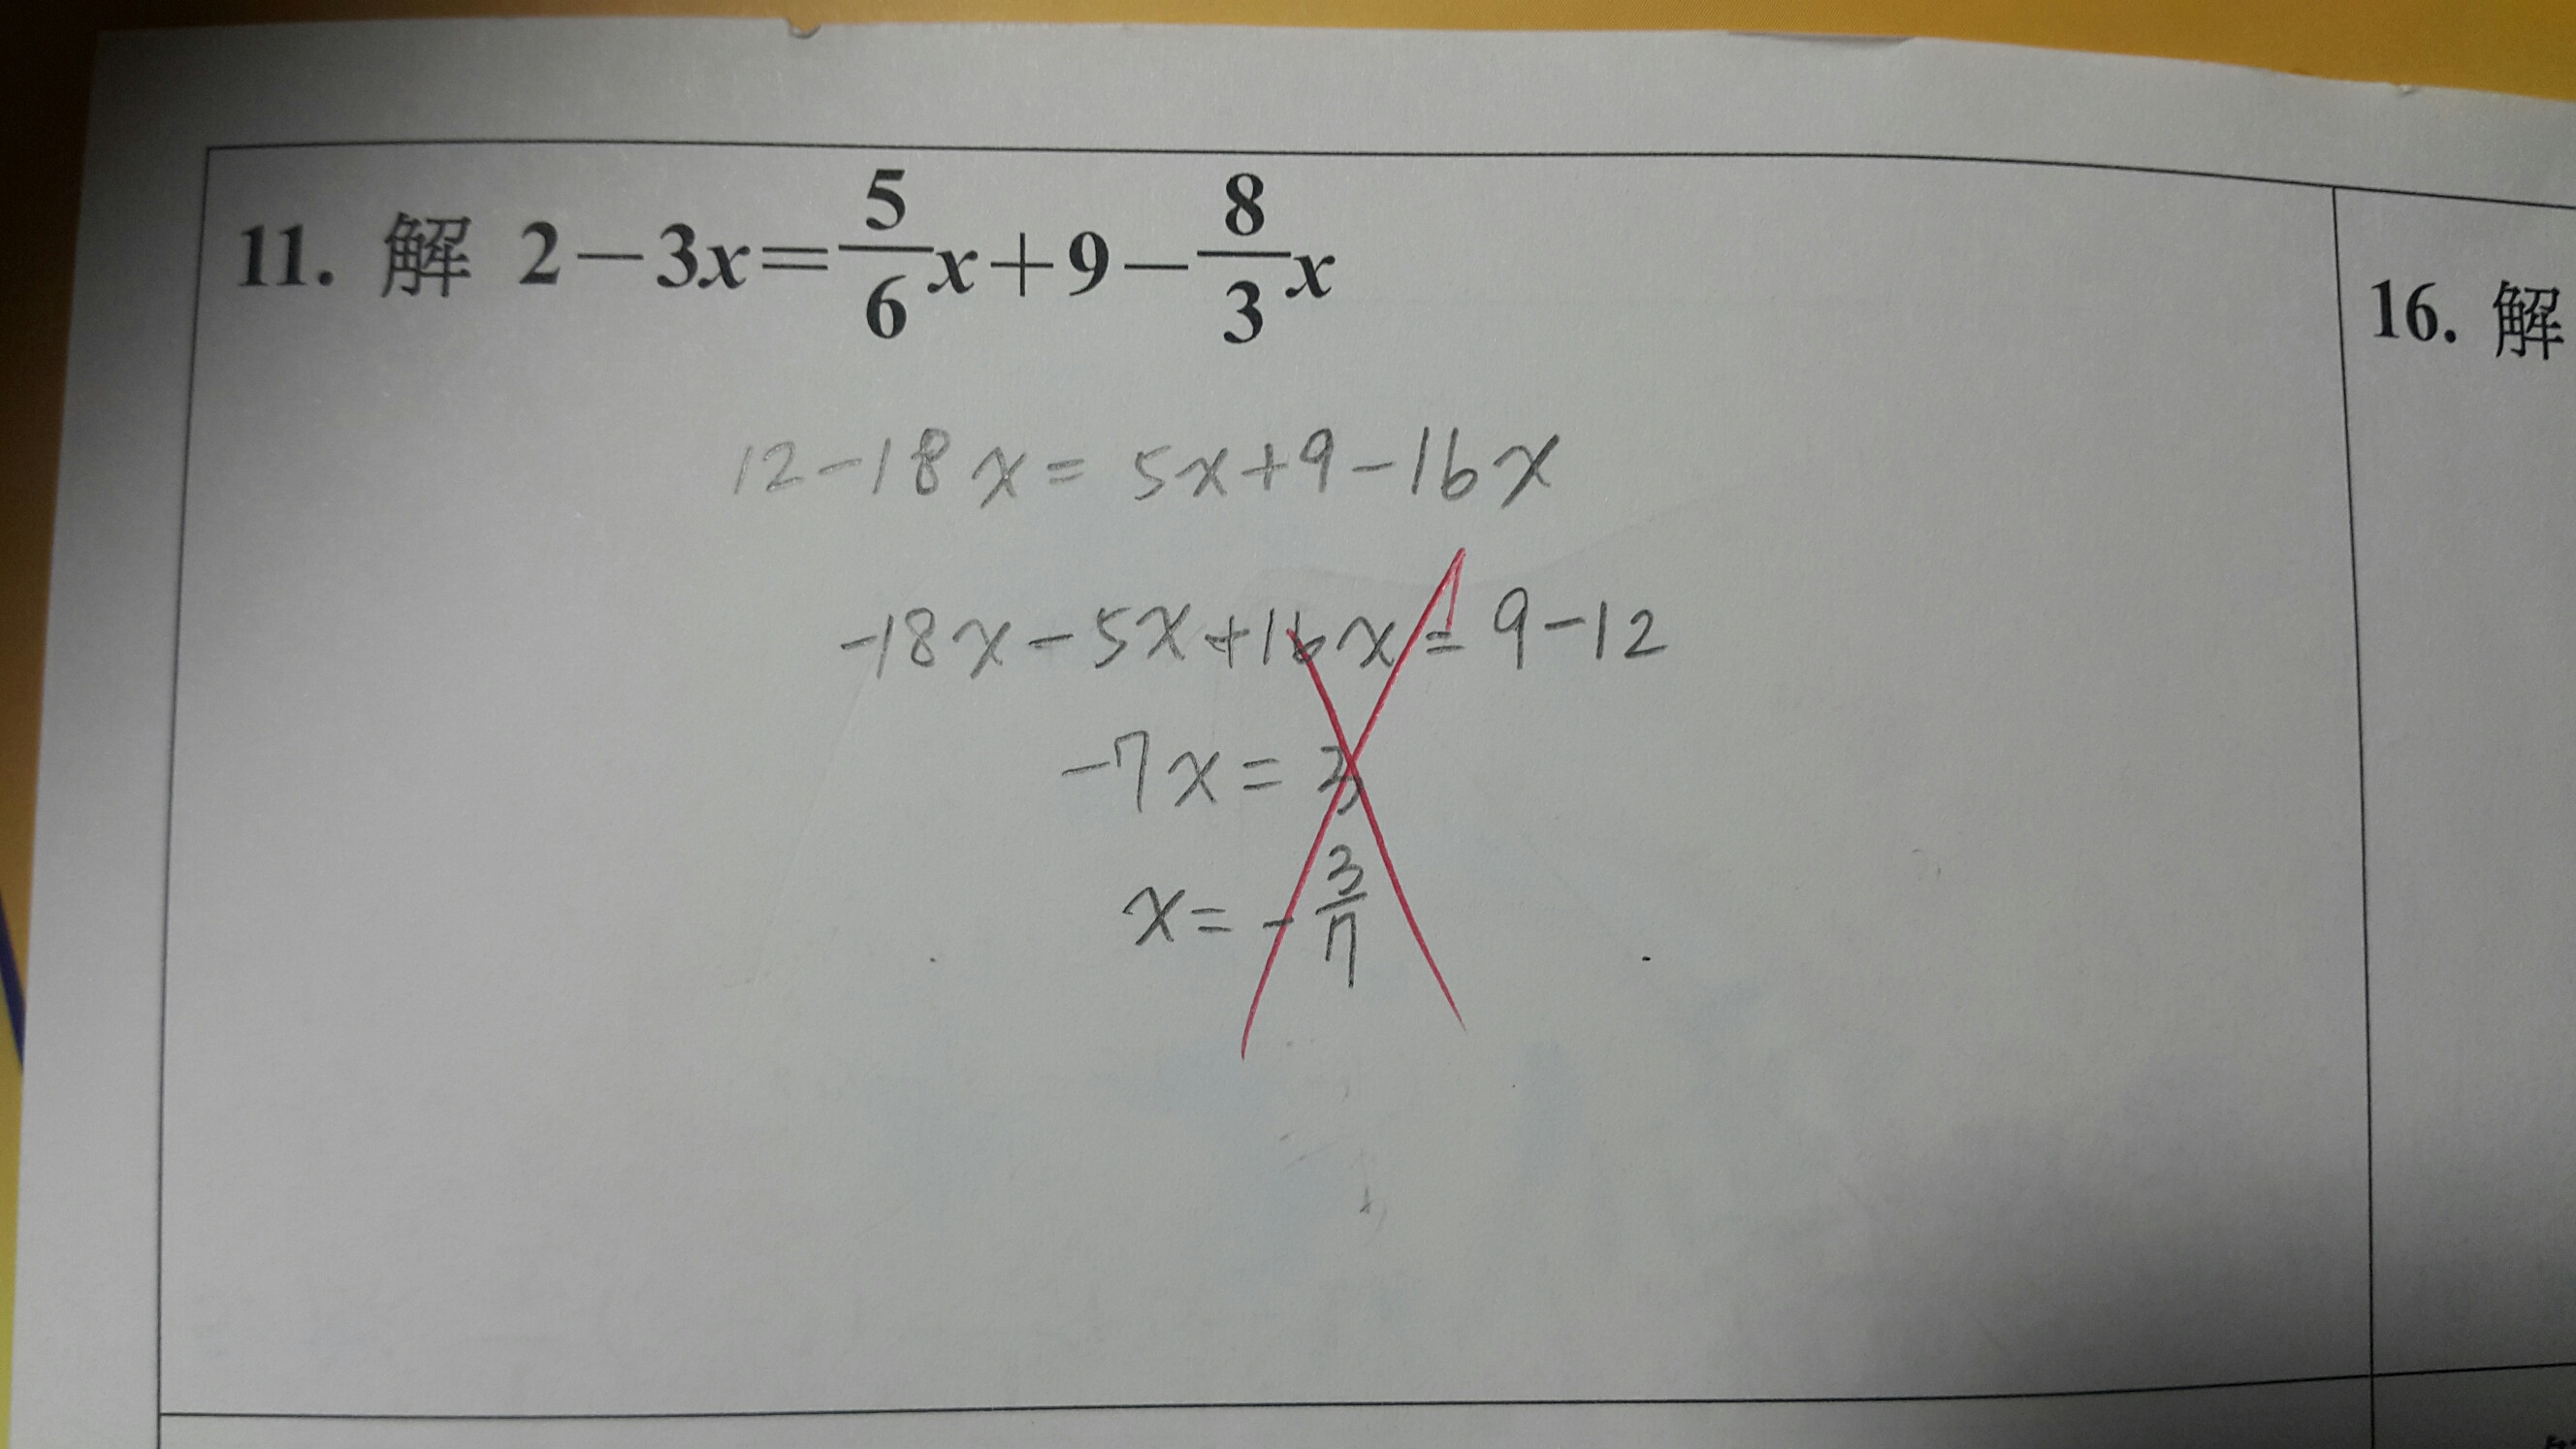 11. 解 2－3x＝5/6x＋9－8/3x
16. 解
12-18x=5x+9-16x
-18x-5x+16x=9-12
-7x=3
x=-3/7